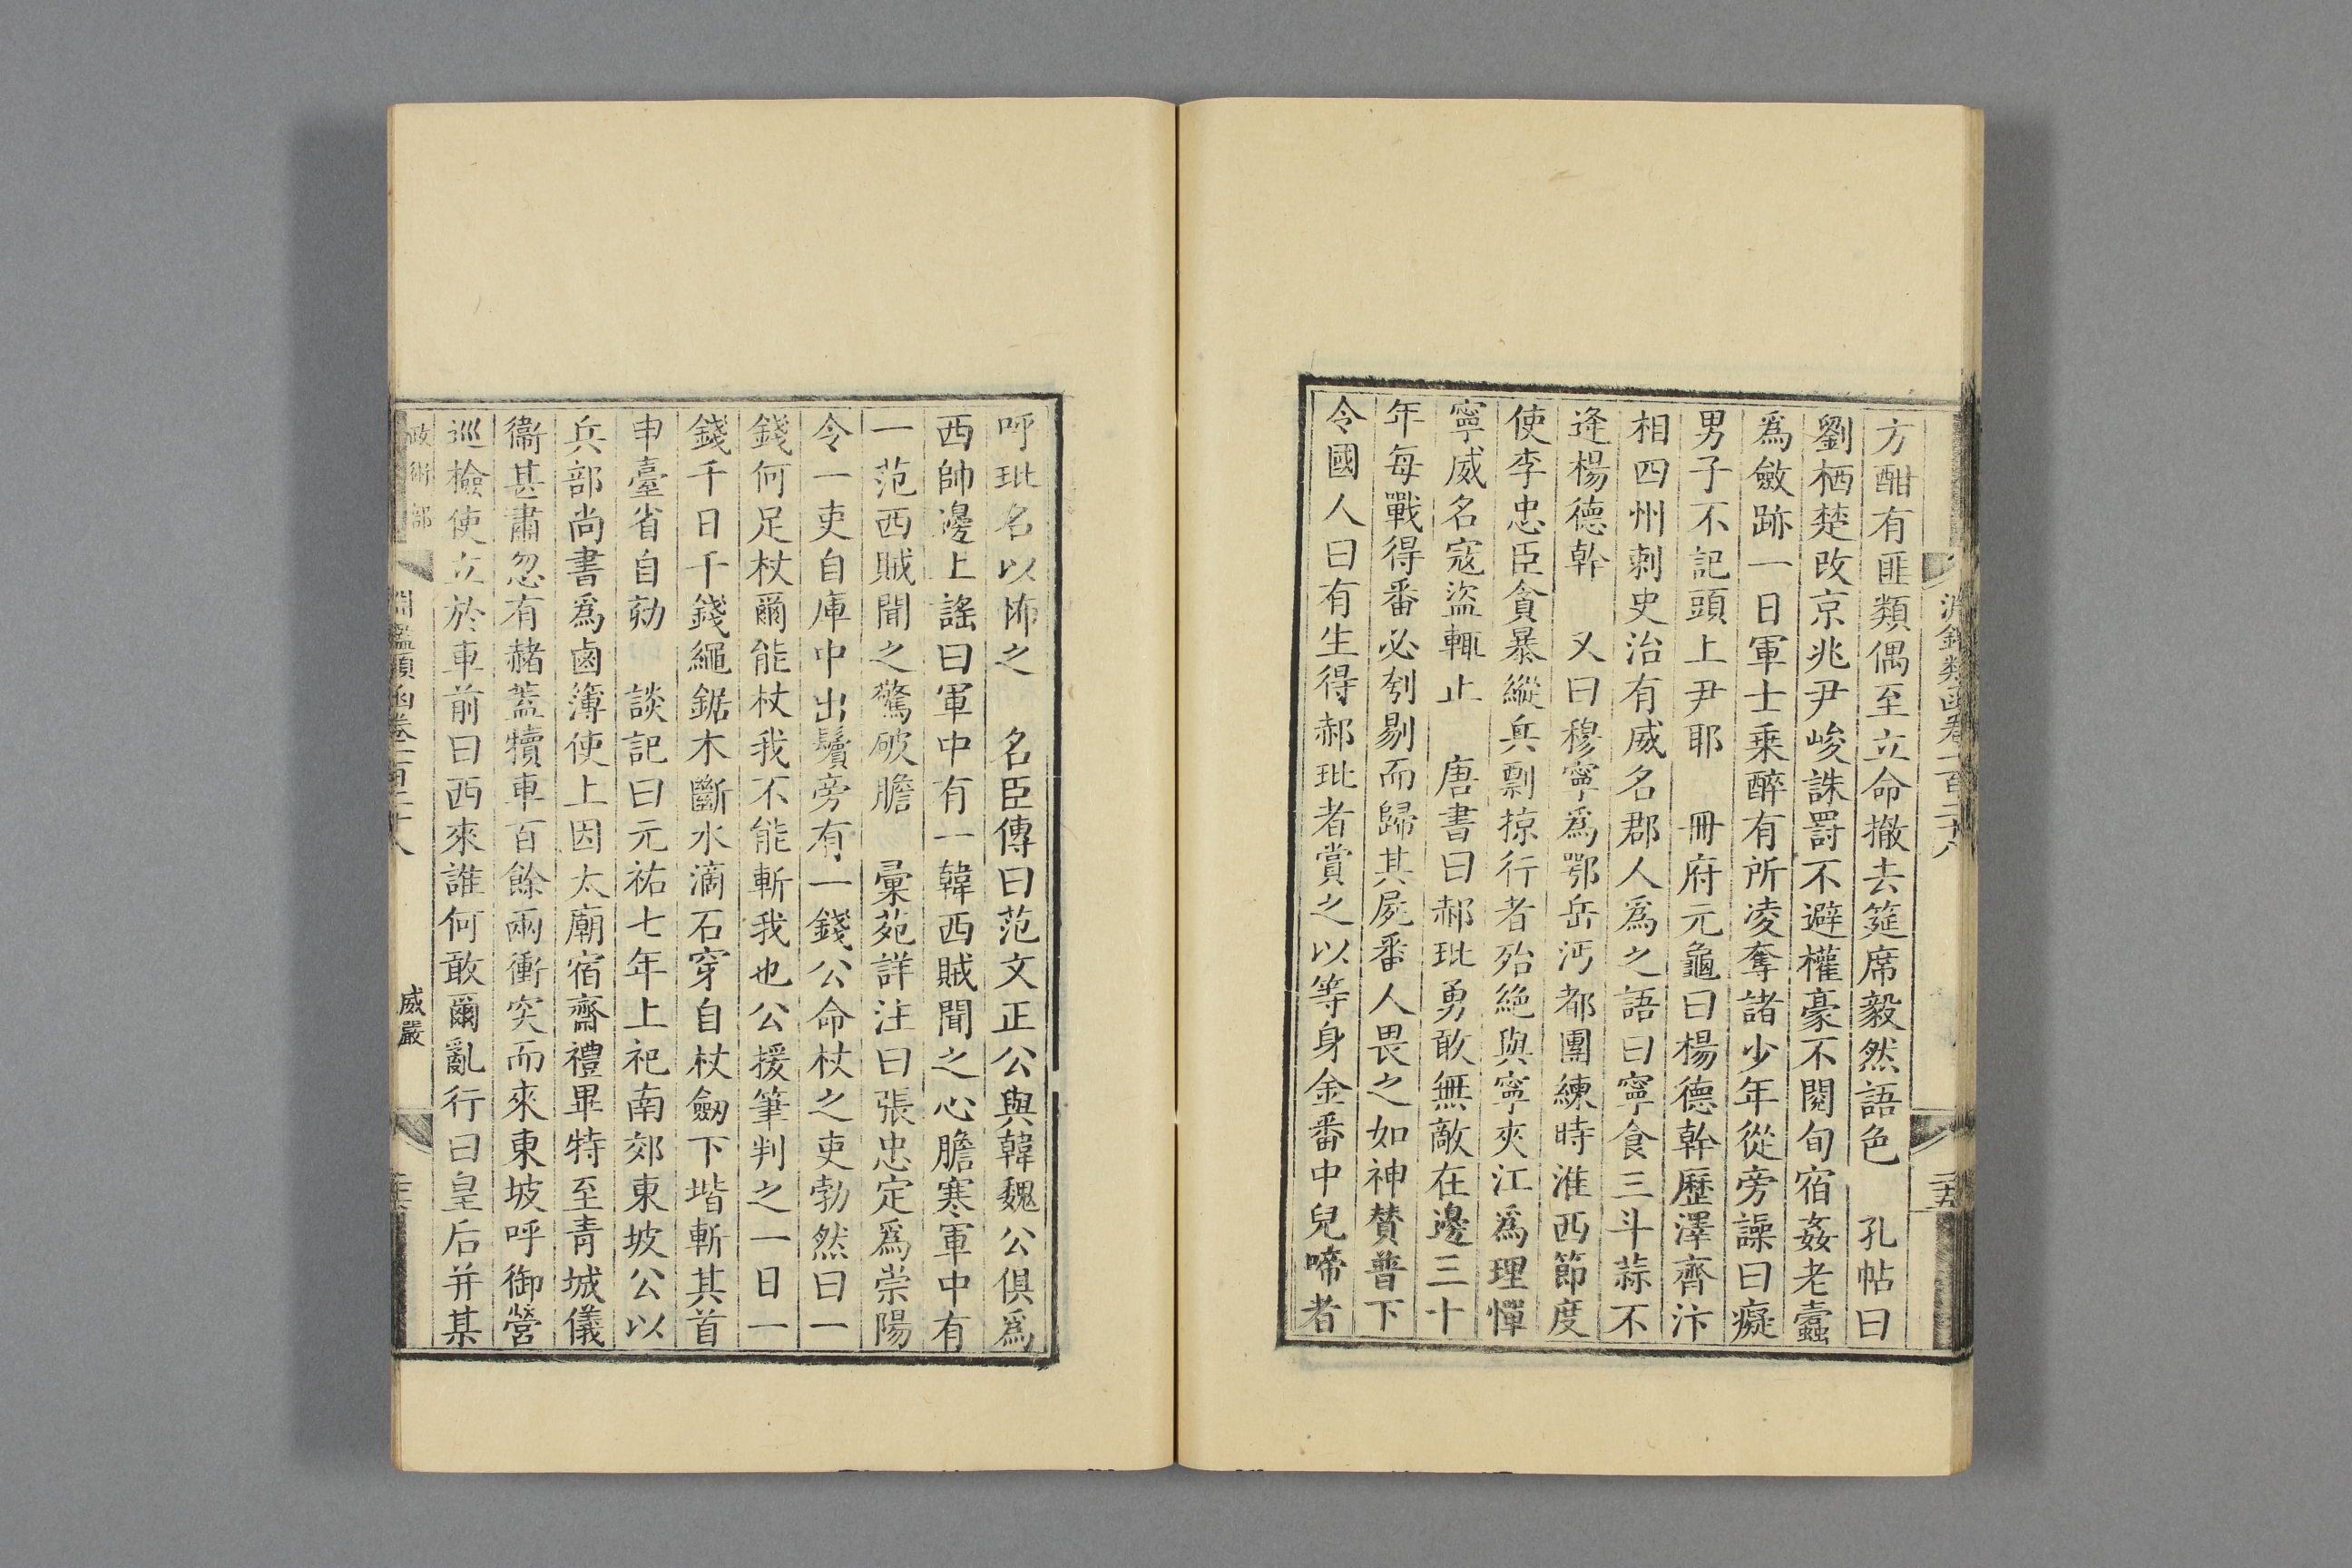 淵鑑類函卷一百二十八
二十五
方酣有匪類偶至立命撤去筵席毅然語色　孔帖曰
劉栖楚改京兆尹峻誅罸不避權豪不閱旬宿姦老蠹
爲斂跡一日軍士乗醉有所凌奪諸少年從旁譟曰癡
男子不記頭上尹耶　冊府元龜曰楊德幹歷澤齊汴
相四州刺史治有威名郡人爲之語曰寧食三斗蒜不
逢楊德幹　又曰穆寧爲鄂岳沔都團練時淮西節度
使李忠臣貪暴縱兵剽掠行者殆絶與寧夾江爲理憚
寧威名寇盜輒止　唐書曰郝玼勇敢無敵在邊三十
年每戰得番必刳剔而歸其屍番人畏之如神賛普下
令國人曰有生得郝玼者賞之以等身金番中兒啼者
呼玼名以怖之　名臣傳曰范文正公與韓魏公俱爲
西帥邊上謠曰軍中有一韓西賊聞之心膽寒軍中有
一范西賊聞之驚破膽　彙苑詳注曰張忠定爲崇陽
令一吏自庫中出鬢旁有一錢公命杖之吏勃然曰一
錢何足杖爾能杖我不能斬我也公援筆判之一日一
錢千日千錢繩鋸木斷水滴石穿自杖劒下堦斬其首
申臺省自劾　談記曰元祐七年上祀南郊東坡公以
兵部尚書爲鹵簿使上因太廟宿齋禮畢特至青城儀
衞甚肅忽有赭蓋犢車百餘兩衝突而來東坡呼御營
巡檢使立於車前曰西來誰何敢爾亂行曰皇后并某
政術部
淵鑑類函卷一百二十八
威嚴